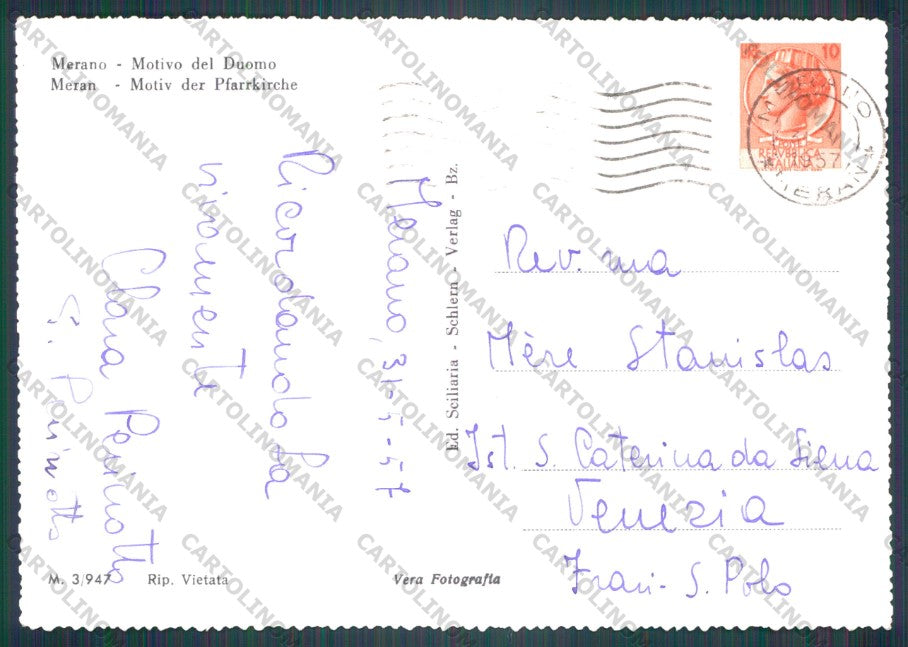 Merano - Motivo del Duomo
Meran - Motiv der Pfarrkirche
10
REPVBBLICA
ITALIANA
MERANO
MERAN
Merano, 31-5-57
Ricordandola
vivamente
Clara Perinotto
S. Perinotto
Ed. Sciliaria - Schlern - Verlag - Bz.
Rev. ma
Mère Stanislas
Ist. S. Caterina da Siena
Venezia
Frari - S. Polo
M. 3/947 Rip. Vietata
Vera Fotografia
CARTOLINOMANIA